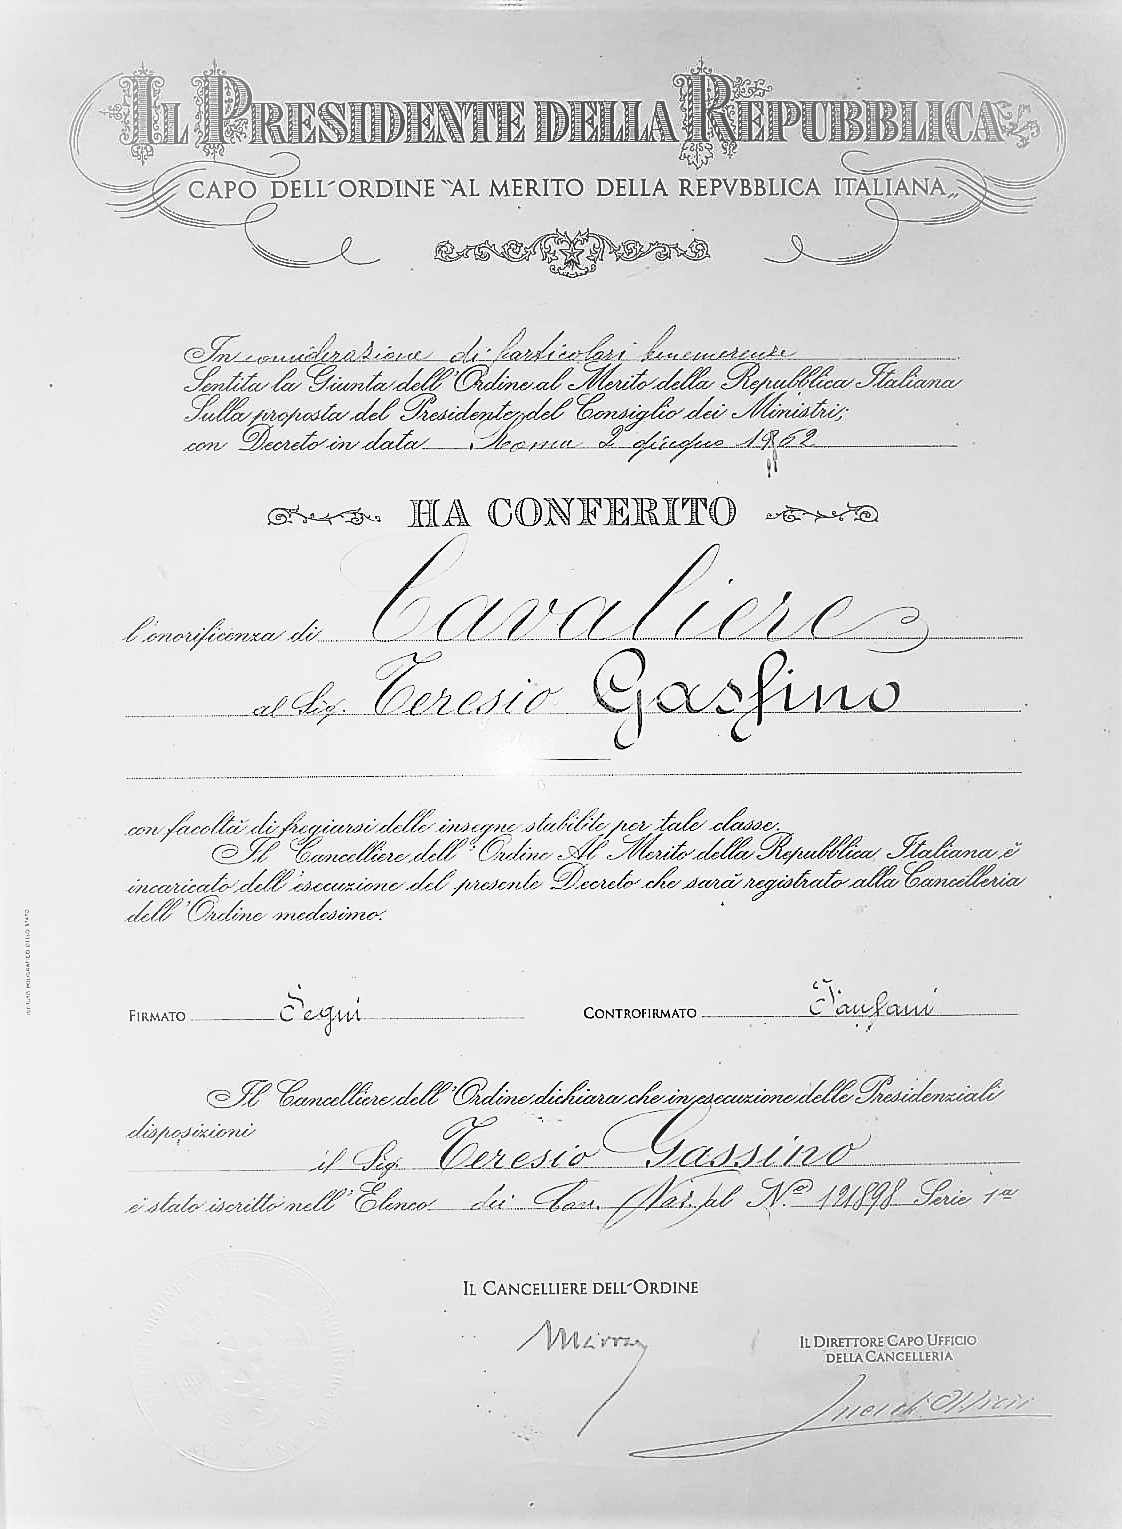 IL PRESIDENTE DELLA REPUBBLICA
CAPO DELL'ORDINE "AL MERITO DELLA REPVBBLICA ITALIANA„
In considerazione di particolari benemerenze
Sentita la Giunta dell'Ordine al Merito della Repubblica Italiana
Sulla proposta del Presidente del Consiglio dei Ministri;
con Decreto in data Roma 2 giugno 1962
HA CONFERITO
l'onorificenza di Cavaliere
al Sig. Teresio Gassino
con facoltà di fregiarsi delle insegne stabilite per tale classe.
Il Cancelliere dell'Ordine Al Merito della Repubblica Italiana è
incaricato dell'esecuzione del presente Decreto che sarà registrato alla Cancelleria
dell'Ordine medesimo.
FIRMATO Segni
CONTROFIRMATO Fanfani
Il Cancelliere dell'Ordine dichiara che in esecuzione delle Presidenziali
disposizioni
il Sig. Teresio Gassino
è stato iscritto nell'Elenco dei Cav. Naz. al N.º 121898 Serie 1ª
IL CANCELLIERE DELL'ORDINE
IL DIRETTORE CAPO UFFICIO
DELLA CANCELLERIA
ISTITUTO POLIGRAFICO DELLO STATO